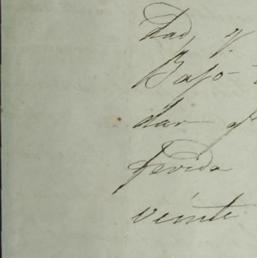 dad, y
Bajo
dar
ferida
veinte